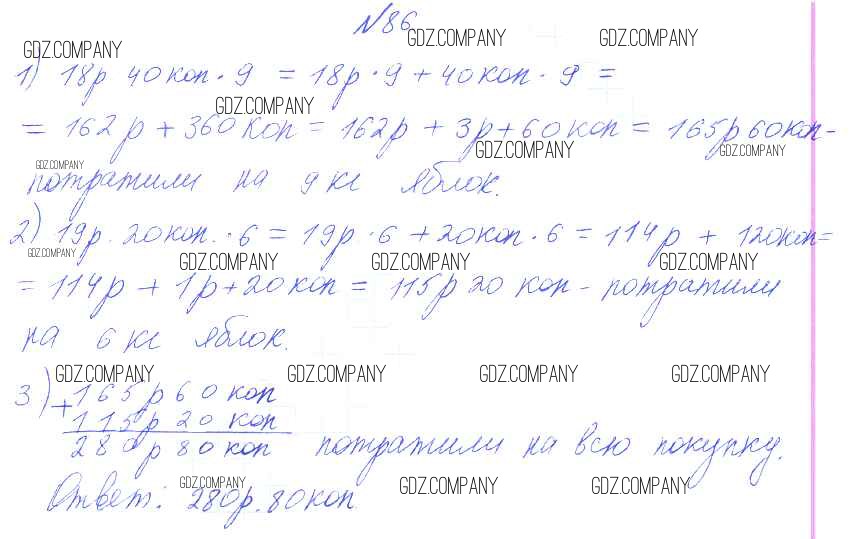 №86
GDZ.COMPANY GDZ.COMPANY GDZ.COMPANY
1) 18р 40коп · 9 = 18р · 9 + 40коп · 9 =
GDZ.COMPANY
= 162р + 360коп = 162р + 3р + 60коп = 165р 60коп -
GDZ.COMPANY GDZ.COMPANY
GDZ.COMPANY
потратили на 9 кг яблок.
2) 19р. 20коп. · 6 = 19р · 6 + 20коп · 6 = 114р + 120коп =
GDZ.COMPANY GDZ.COMPANY GDZ.COMPANY GDZ.COMPANY
= 114р + 1р + 20коп = 115р 20 коп - потратили
на 6 кг яблок.
GDZ.COMPANY GDZ.COMPANY GDZ.COMPANY GDZ.COMPANY
3) + 165р 60 коп
115р 20 коп
280р 80 коп потратили на всю покупку.
GDZ.COMPANY GDZ.COMPANY GDZ.COMPANY
Ответ: 280р. 80коп.